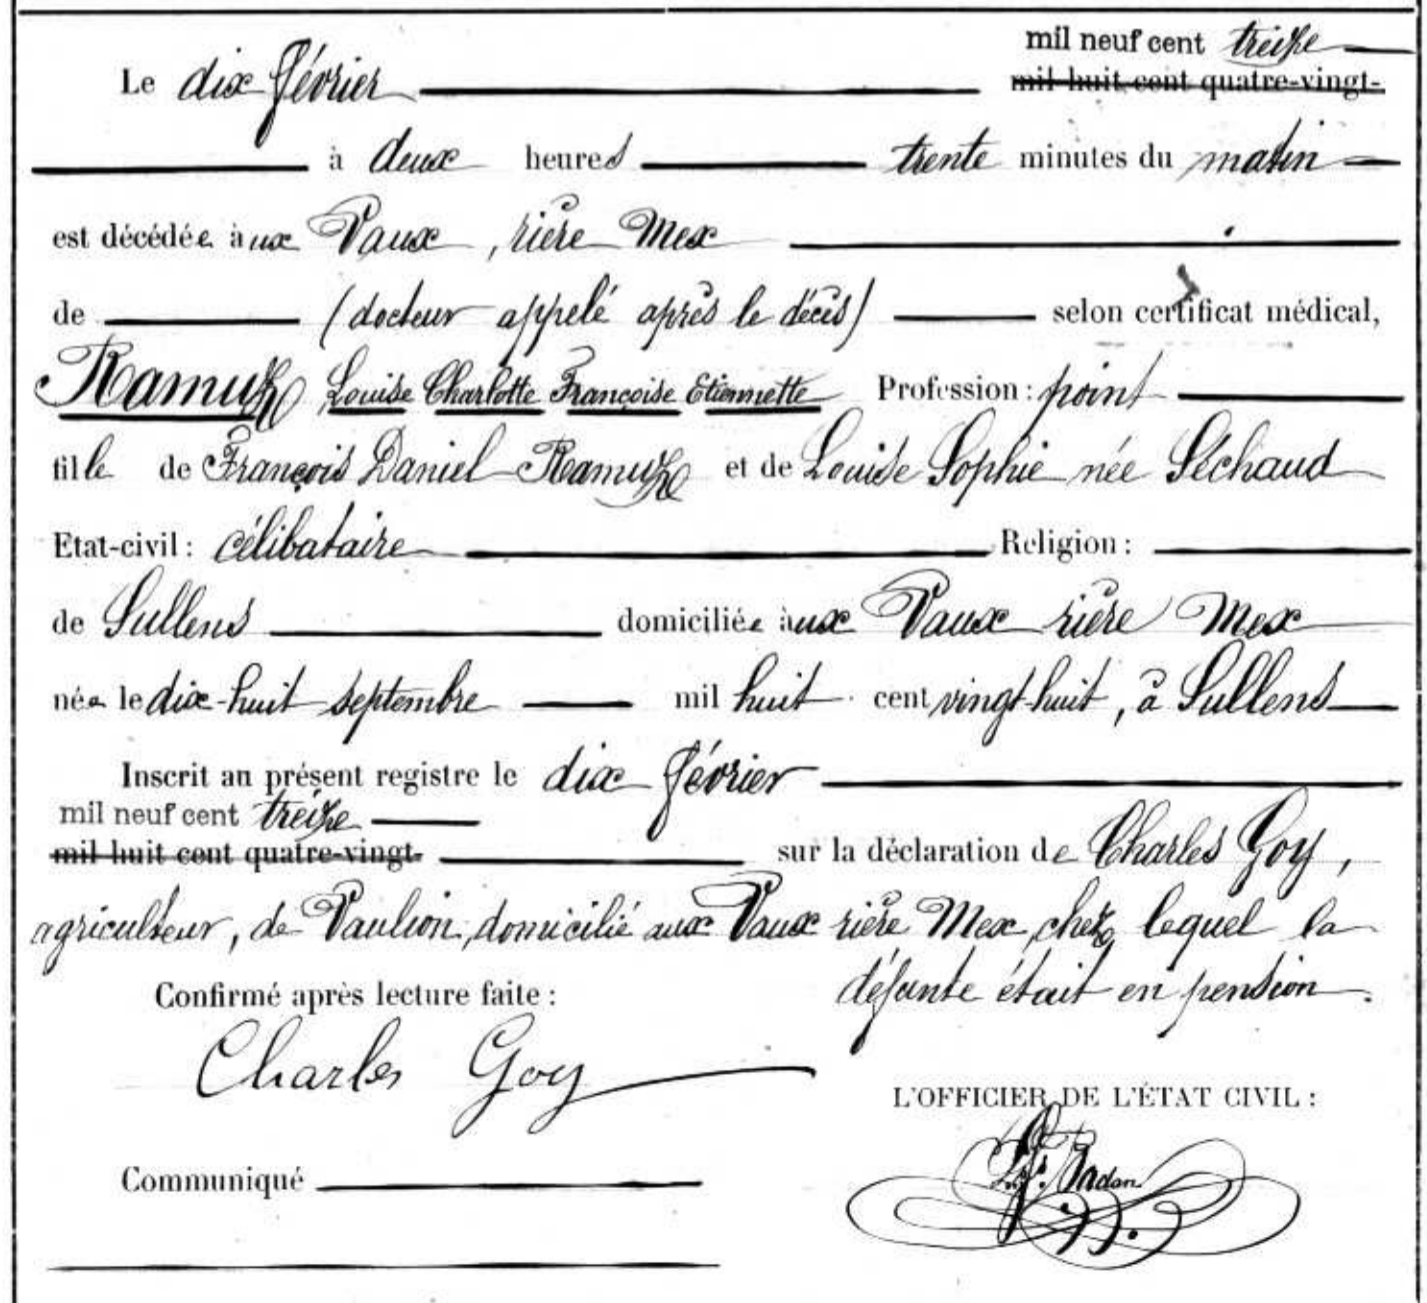 mil neuf cent treize
Le dix février mil huit cent quatre-vingt-
à deux heures trente minutes du matin
est décédée à ux Vaux, rière Mex
de (docteur appelé après le décès) selon certificat médical,
Ramuz, Louise Charlotte Françoise Etiennette Profession : point
fille de François Daniel Ramuz et de Louise Sophie née Séchaud
Etat-civil : célibataire Religion :
de Sullens domiciliée à ux Vaux rière Mex
née le dix-huit septembre mil huit cent vingt-huit, à Sullens
Inscrit au présent registre le dix février
mil neuf cent treize
mil huit cent quatre-vingt- sur la déclaration de Charles Goy,
agriculteur, de Vaulion, domicilié aux Vaux rière Mex, chez lequel la
défunte était en pension.
Confirmé après lecture faite :
Charles Goy
L'OFFICIER DE L'ÉTAT CIVIL :
Communiqué